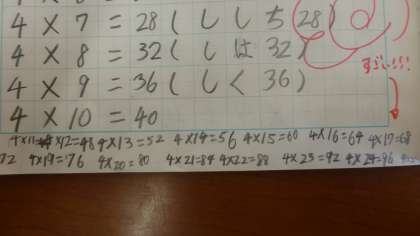 4×7=28(しちち28)
4×8=32(しは32)
4×9=36(しく36)
すごい!!!
4×10=40
4×12=48 4×13=52 4×14=56 4×15=60 4×16=64 4×17=68
72 4×19=76 4×20=80 4×21=84 4×22=88 4×23=92 4×24=96